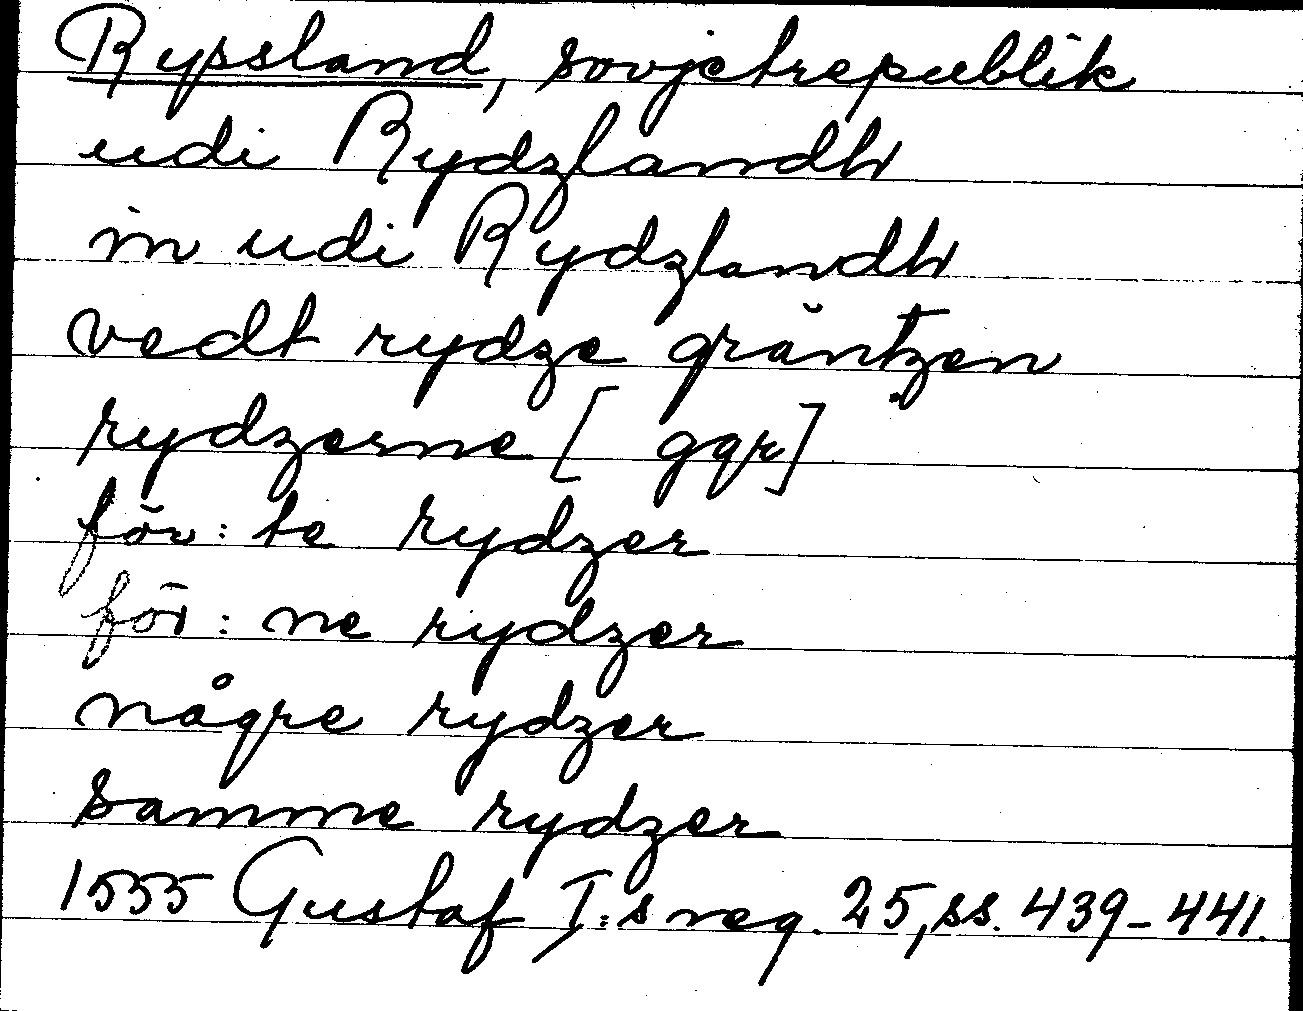 Ryssland, sovjetrepublik
udi Rydzlandh
in udi Rydzlandh
vedt rydze gräntzen
rydzerne [ ggr]
för: te rydzer
för: ne rydzer
någre rydzer
samme rydzer
1555 Gustaf I:s reg. 25, ss. 439-441.